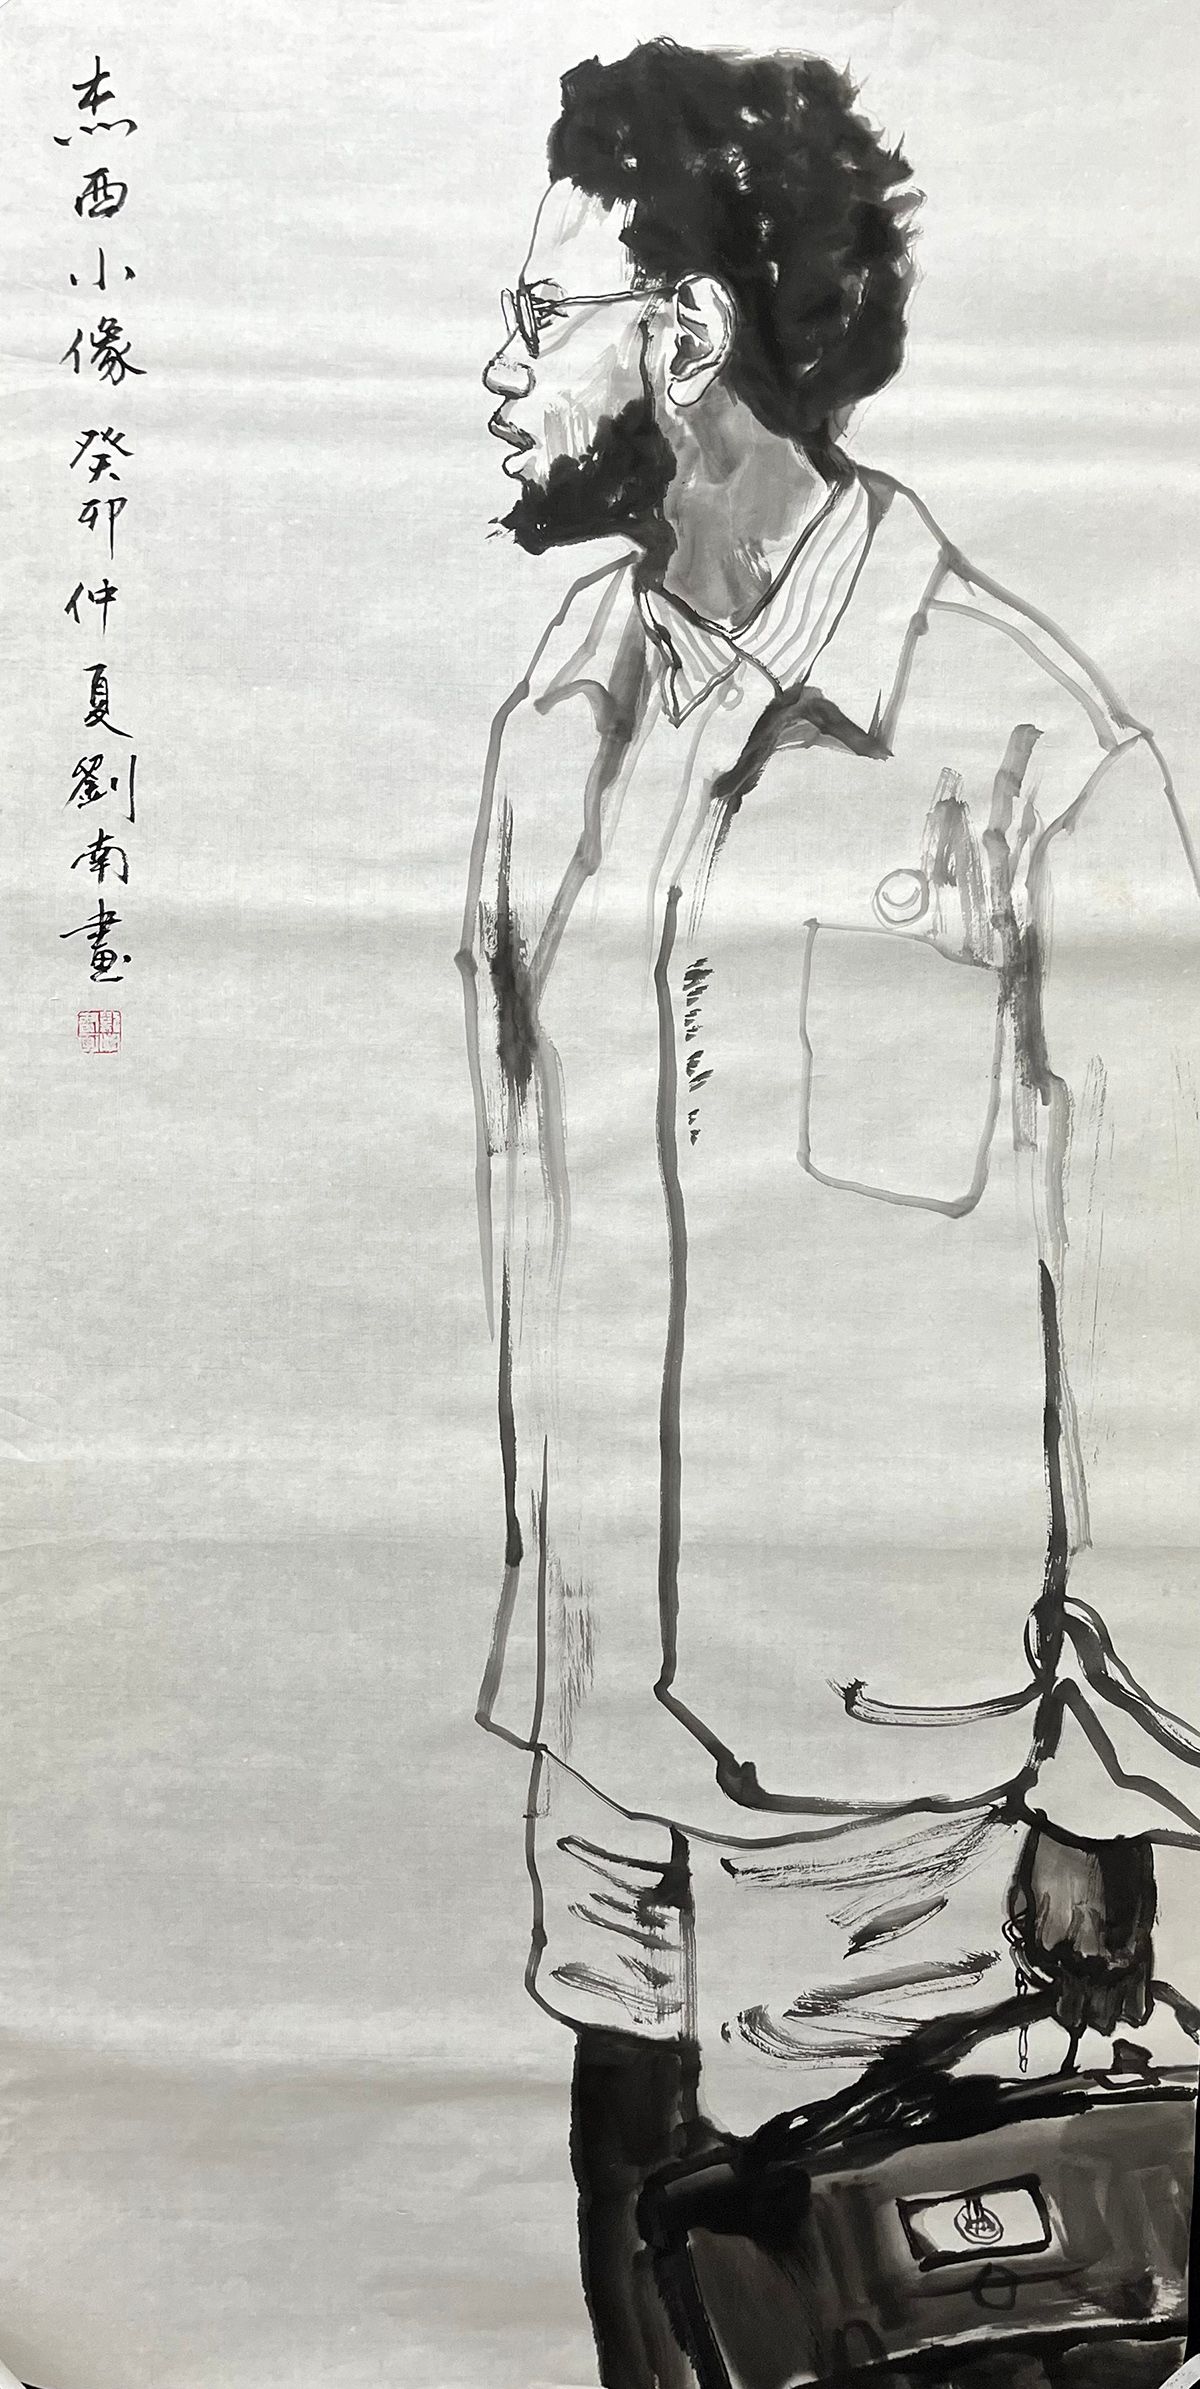 杰西小像 癸卯仲夏劉南畫